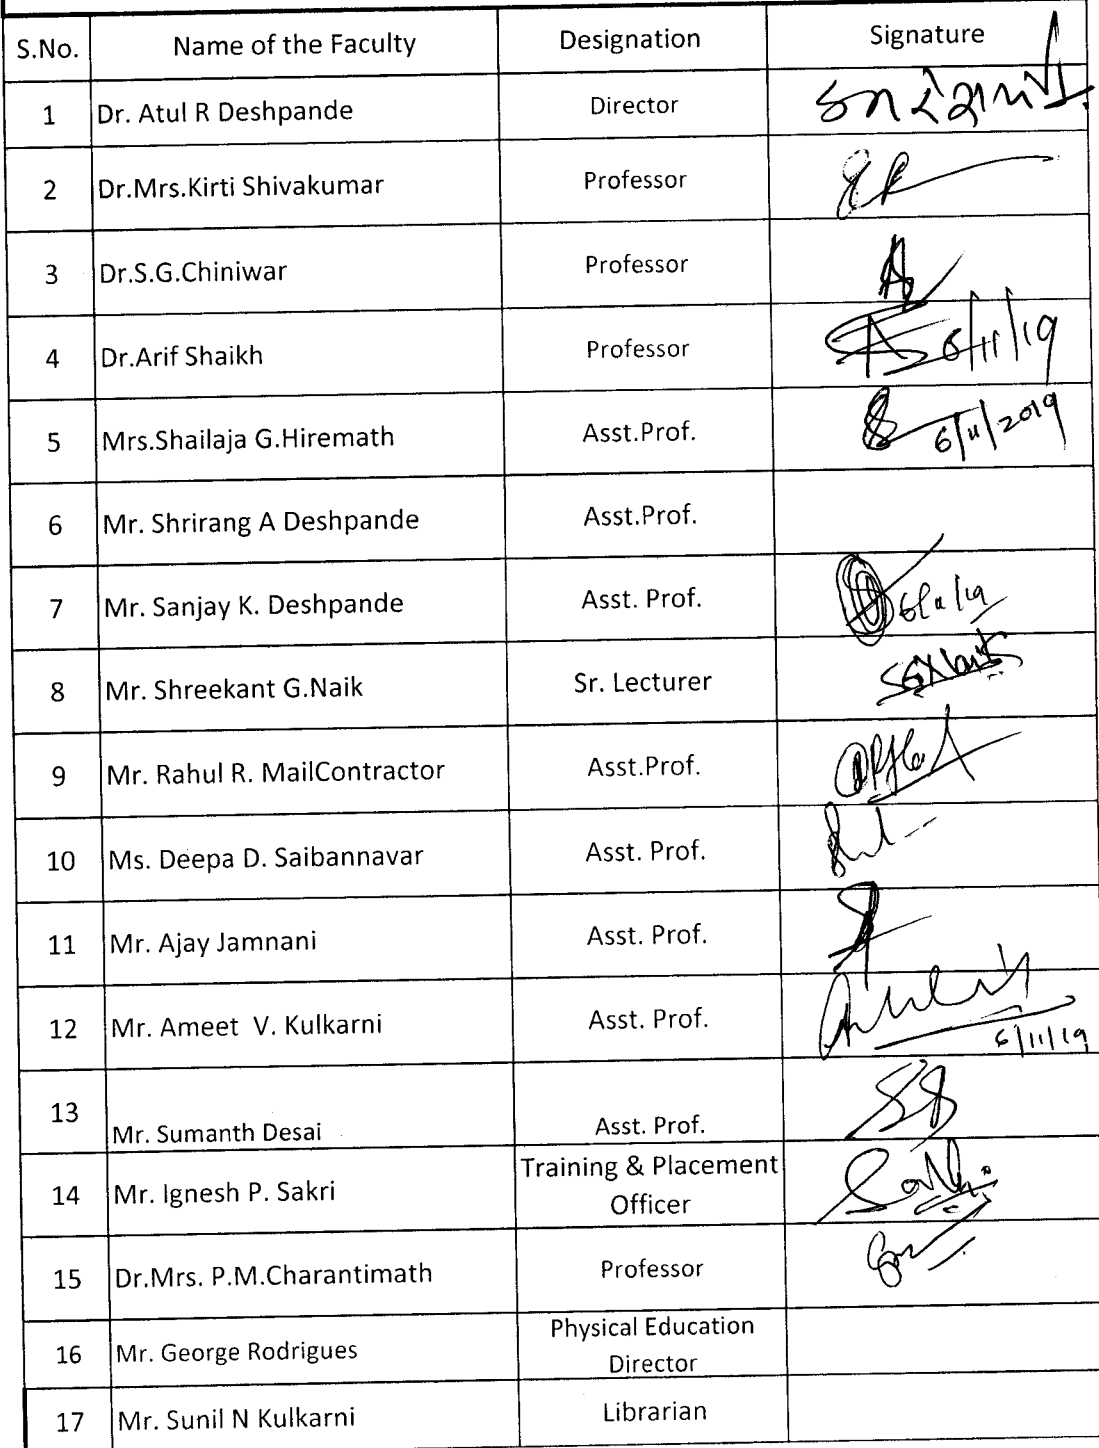 S.No. Name of the Faculty Designation Signature
1 Dr. Atul R Deshpande Director
2 Dr.Mrs.Kirti Shivakumar Professor
3 Dr.S.G.Chiniwar Professor
4 Dr.Arif Shaikh Professor 6/11/19
5 Mrs.Shailaja G.Hiremath Asst.Prof. 6/11/2019
6 Mr. Shrirang A Deshpande Asst.Prof.
7 Mr. Sanjay K. Deshpande Asst. Prof. 6/11/19
8 Mr. Shreekant G.Naik Sr. Lecturer
9 Mr. Rahul R. MailContractor Asst.Prof.
10 Ms. Deepa D. Saibannavar Asst. Prof.
11 Mr. Ajay Jamnani Asst. Prof.
12 Mr. Ameet V. Kulkarni Asst. Prof. 6/11/19
13 Mr. Sumanth Desai Asst. Prof.
14 Mr. Ignesh P. Sakri Training & Placement
Officer
15 Dr.Mrs. P.M.Charantimath Professor
16 Mr. George Rodrigues Physical Education
Director
17 Mr. Sunil N Kulkarni Librarian